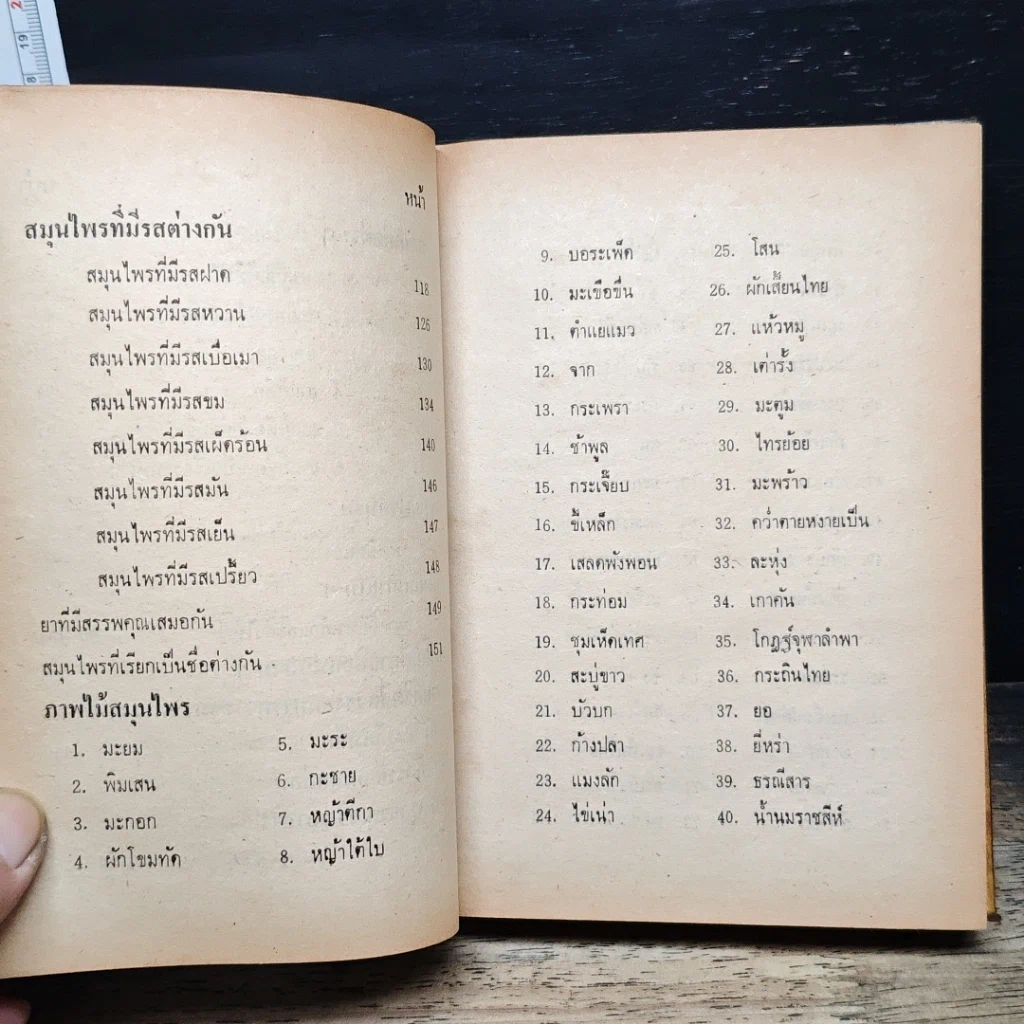 หน้า
สมุนไพรที่มีรสต่างกัน
สมุนไพรที่มีรสฝาด 118
สมุนไพรที่มีรสหวาน 126
สมุนไพรที่มีรสเบื่อเมา 130
สมุนไพรที่มีรสขม 134
สมุนไพรที่มีรสเผ็ดร้อน 140
สมุนไพรที่มีรสมัน 146
สมุนไพรที่มีรสเย็น 147
สมุนไพรที่มีรสเปรี้ยว 148
ยาที่มีสรรพคุณเสมอกัน 149
สมุนไพรที่เรียกเป็นชื่อต่างกัน 151
ภาพไม้สมุนไพร
1. มะยม
2. พิมเสน
3. มะกอก
4. ผักโขมหัด
5. มะระ
6. กะชาย
7. หญ้าตีกา
8. หญ้าใต้ใบ
9. บอระเพ็ด
10. มะเขือขื่น
11. ตำแยแมว
12. จาก
13. กระเพรา
14. ช้าพูล
15. กระเจี๊ยบ
16. ขี้เหล็ก
17. เสลดพังพอน
18. กระท่อม
19. ชุมเห็ดเทศ
20. สะบู่ขาว
21. บัวบก
22. ก้างปลา
23. แมงลัก
24. ไข่เน่า
25. โสน
26. ผักเสี้ยนไทย
27. แห้วหมู
28. เต่าร้ง
29. มะตูม
30. ไทรย้อย
31. มะพร้าว
32. คว่ำตายหงายเป็น
33. ละหุ่ง
34. เถาคัน
35. โกฏฐ์จุฬาลำพา
36. กระถินไทย
37. ยอ
38. ยี่หร่า
39. ธรณีสาร
40. น้ำนมราชสีห์
19